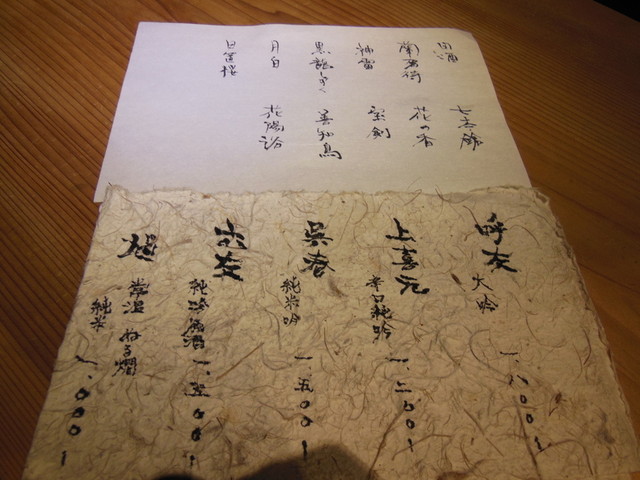 日酒
七本鎗
花の香
神雷
宝剣
黒龍しずく
善知鳥
月白
花陽浴
日置桜
呼友
大吟
一、八〇〇、
上喜元
辛口純吟
一、二〇〇、
呉春
純米吟
一、五〇〇、
純吟原酒
一、五〇〇、
常温 ぬる燗
純米
一、〇〇〇、